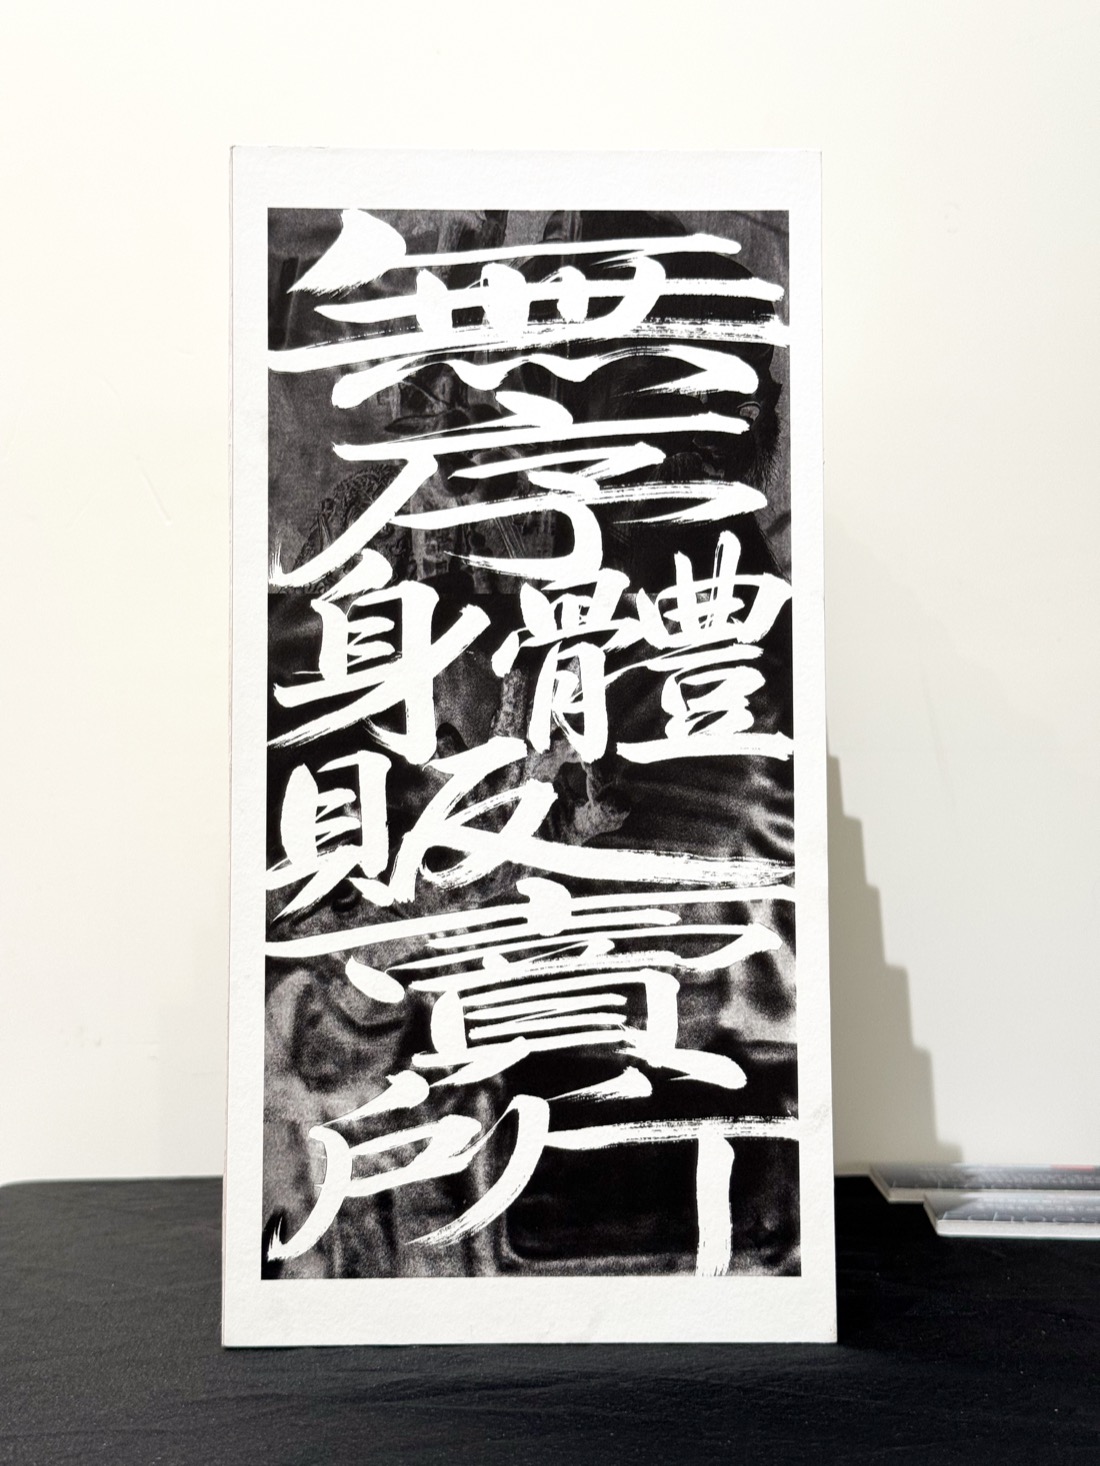 無
序
身體
販
賣
所